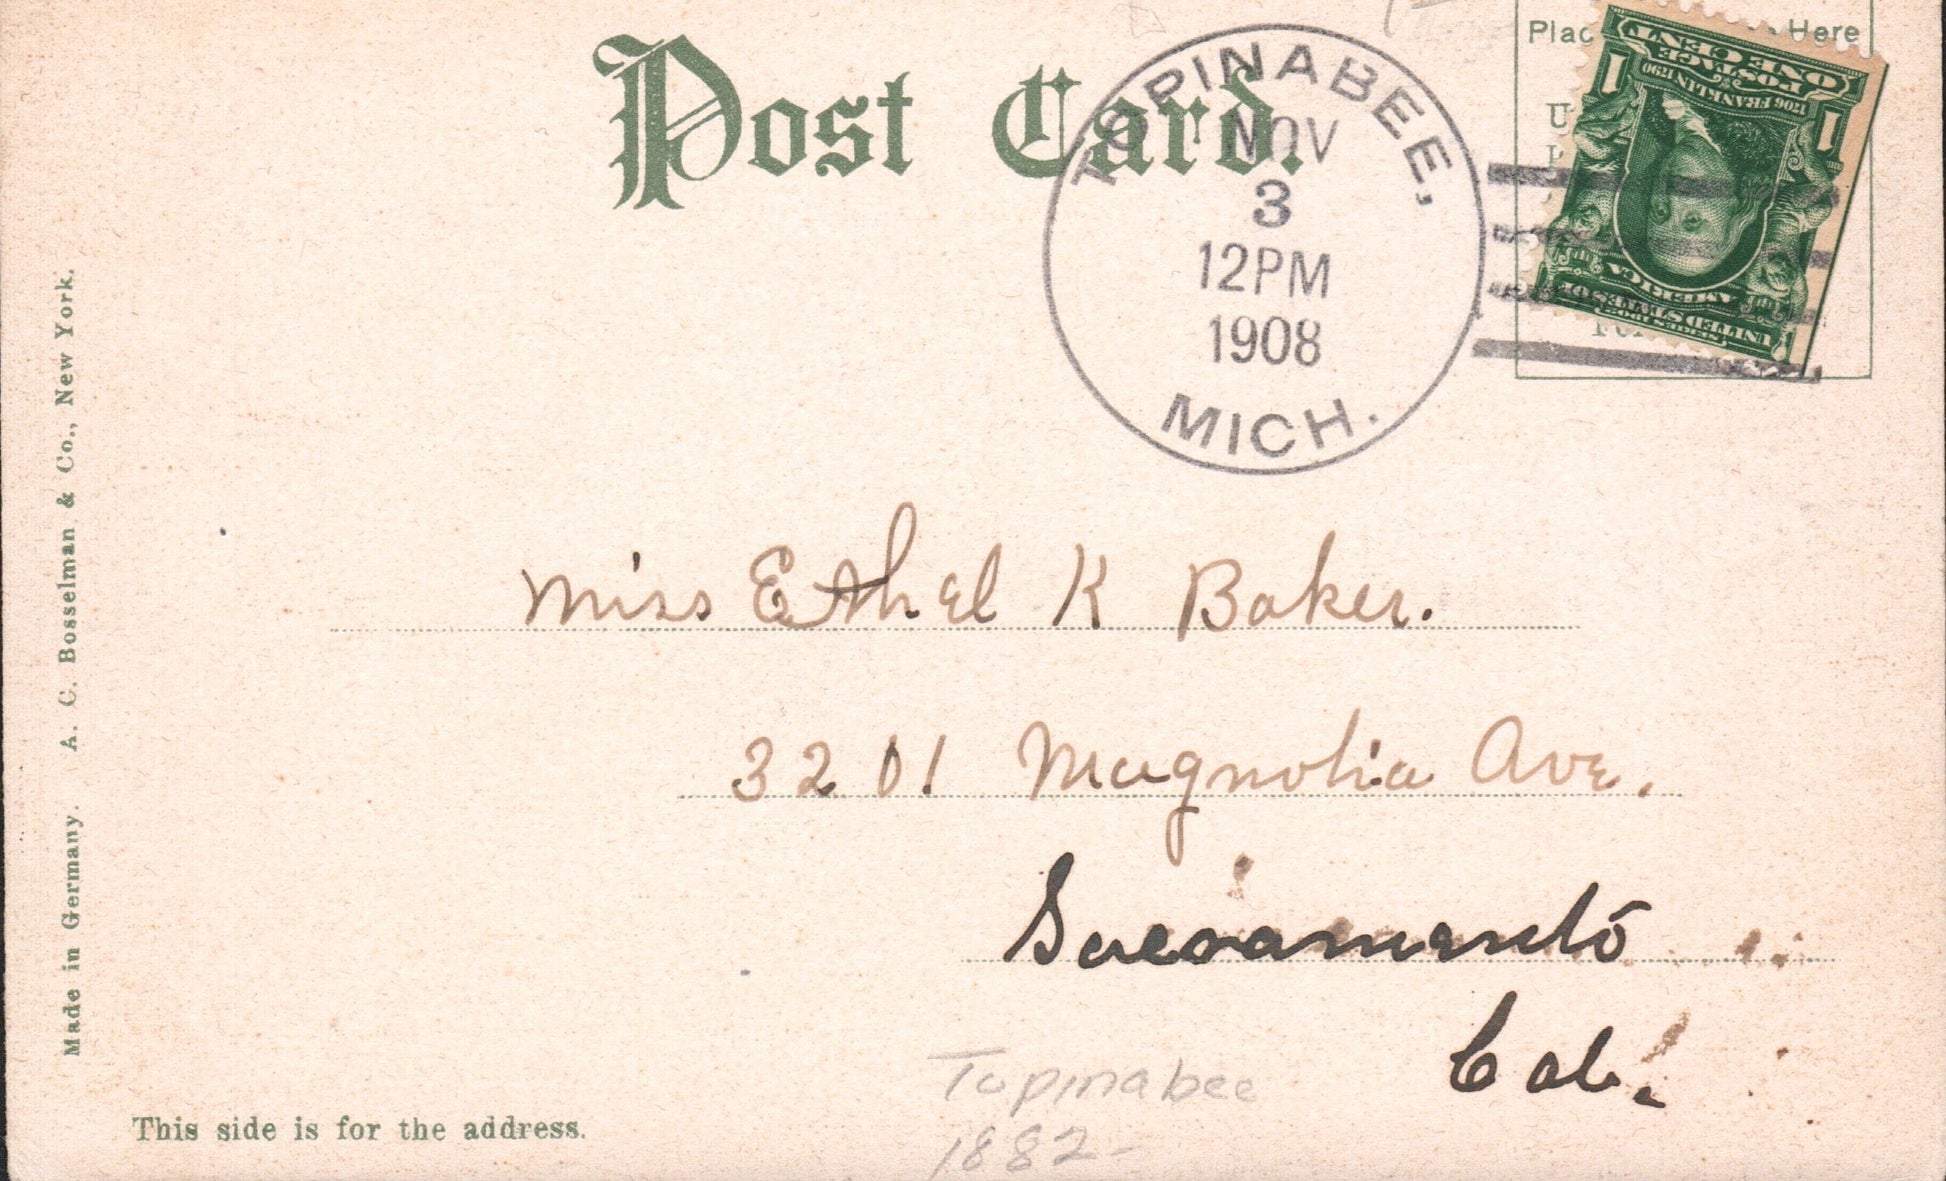 Post Card.
TOPINABEE,
NOV
3
12PM
1908
MICH.
Plac Here
1 POSTAGE 1
ONE CENT
1706 FRANKLIN 1790
SERIES 1902
UNITED STATES OF
AMERICA
Miss Ethel K Baker.
3201 Magnolia Ave.
Sacramento
Cal.
Topinabee
1882-
This side is for the address.
Made in Germany. A. C. Bosselman & Co., New York.